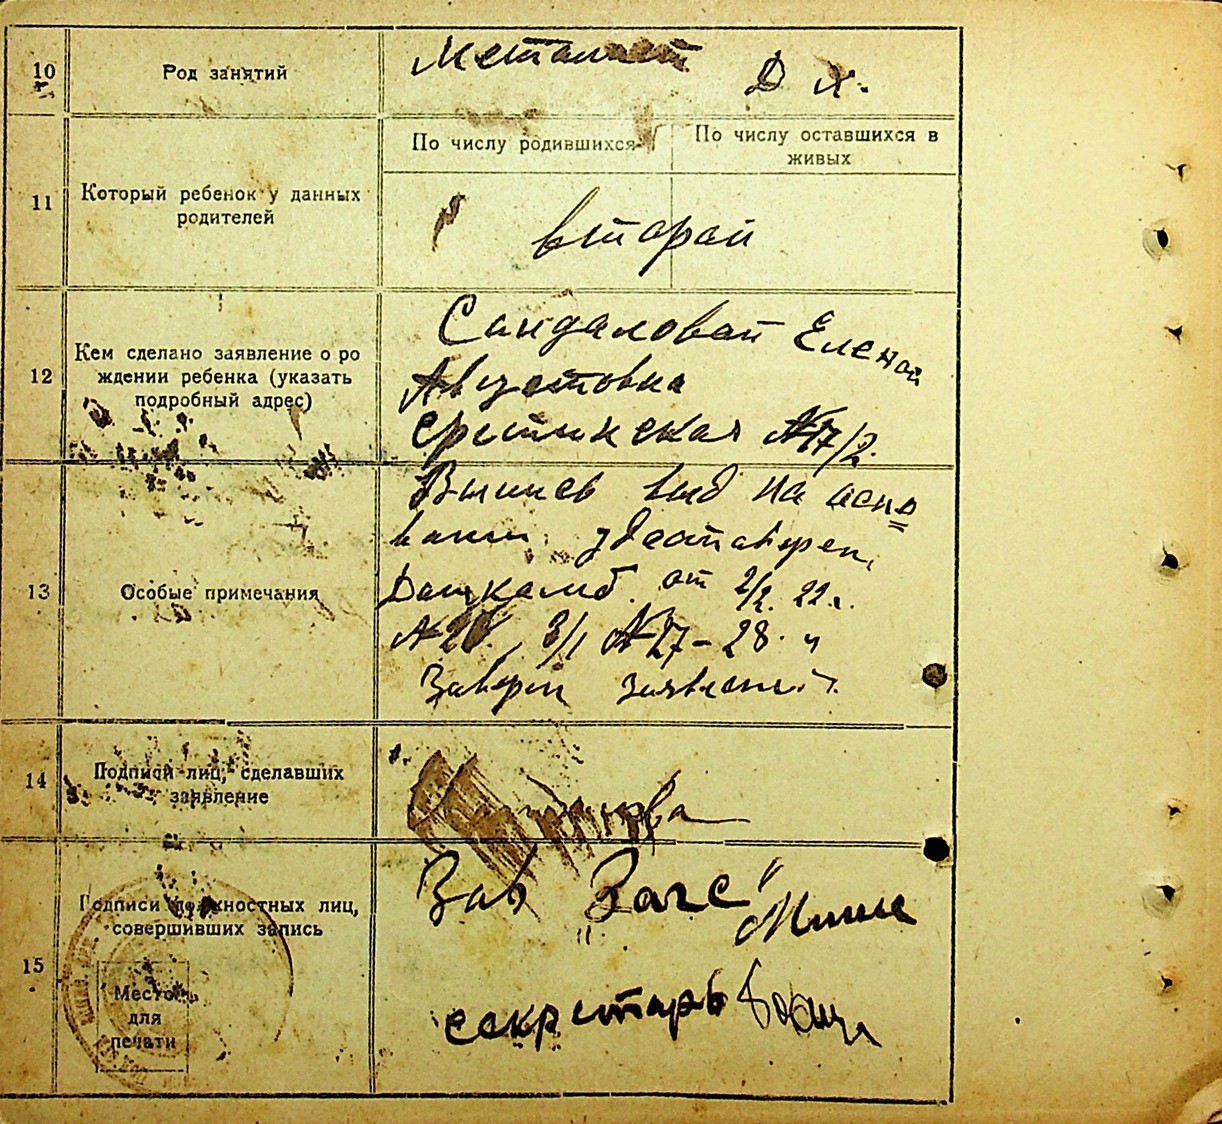 10
Род занятий
Металист Д х.
11
Который ребенок у данных
родителей
По числу родившихся
По числу оставшихся в
живых
второй
12
Кем сделано заявление о ро
ждении ребенка (указать
подробный адрес)
Сандаловой Еленой
Августовна
№17/2.
13
Особые примечания
Выпись выд на осно
вании удостоверен.
от 2/2. 22 г.
3/1 №27-28. и
заявлений.
14
Подписи лиц, сделавших
заявление
15
Подписи должностных лиц,
совершивших запись
Место
для
печати
Зав „Загс"
секретарь